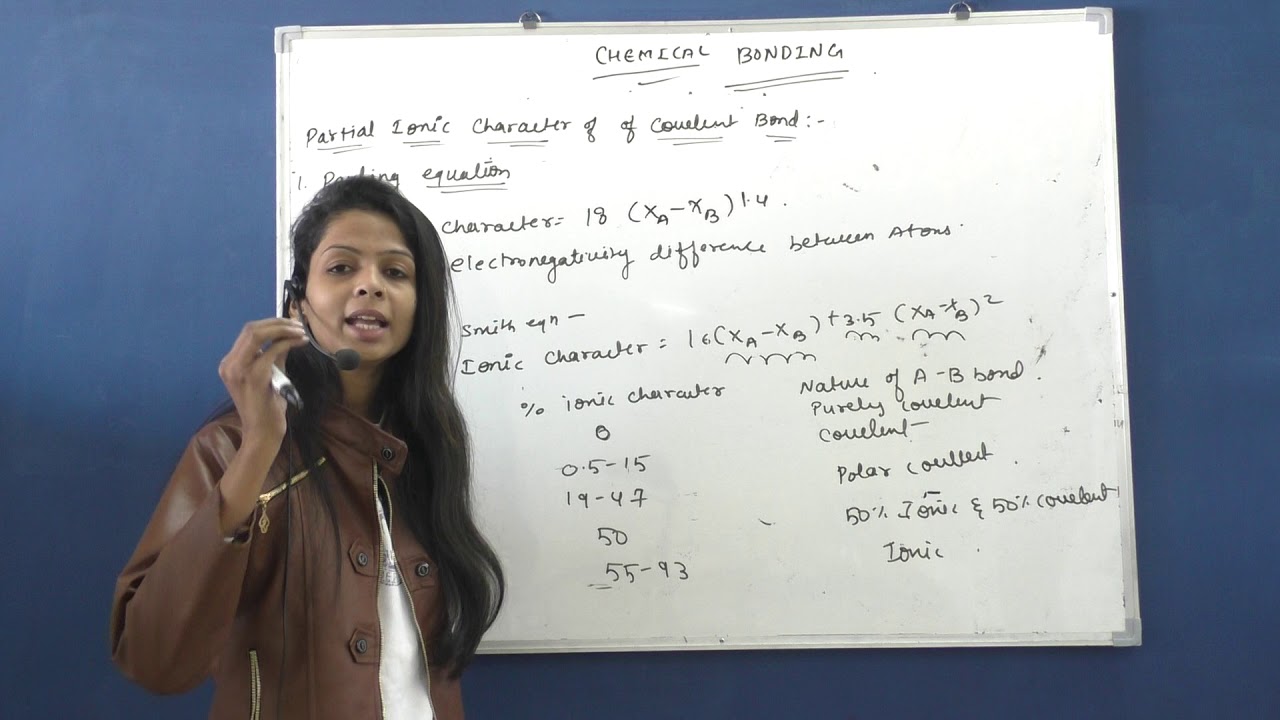 CHEMICAL BONDING
Partial Ionic Character of of Covelent Bond:-
1. Pauling equation
character= 18 (XA-XB)1.4.
electronegativity difference between Atoms.
Smith eqn -
Ionic Character = 16(XA-XB)+3.5 (XA-XB)2
% ionic character
Nature of A-B bond.
0
Purely covelent
0.5-15
Covelent-
19-47
Polar covelent.
50
50% Ionic & 50% covelent
55-93
Ionic.